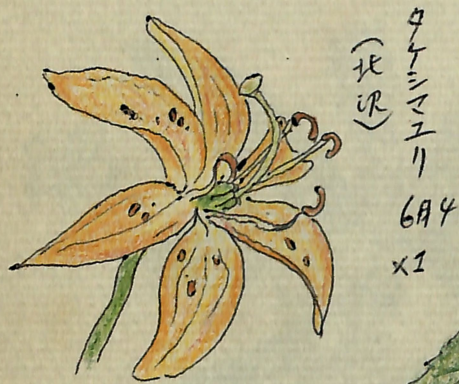 タケシマユリ
(北沢)
6月4
×1